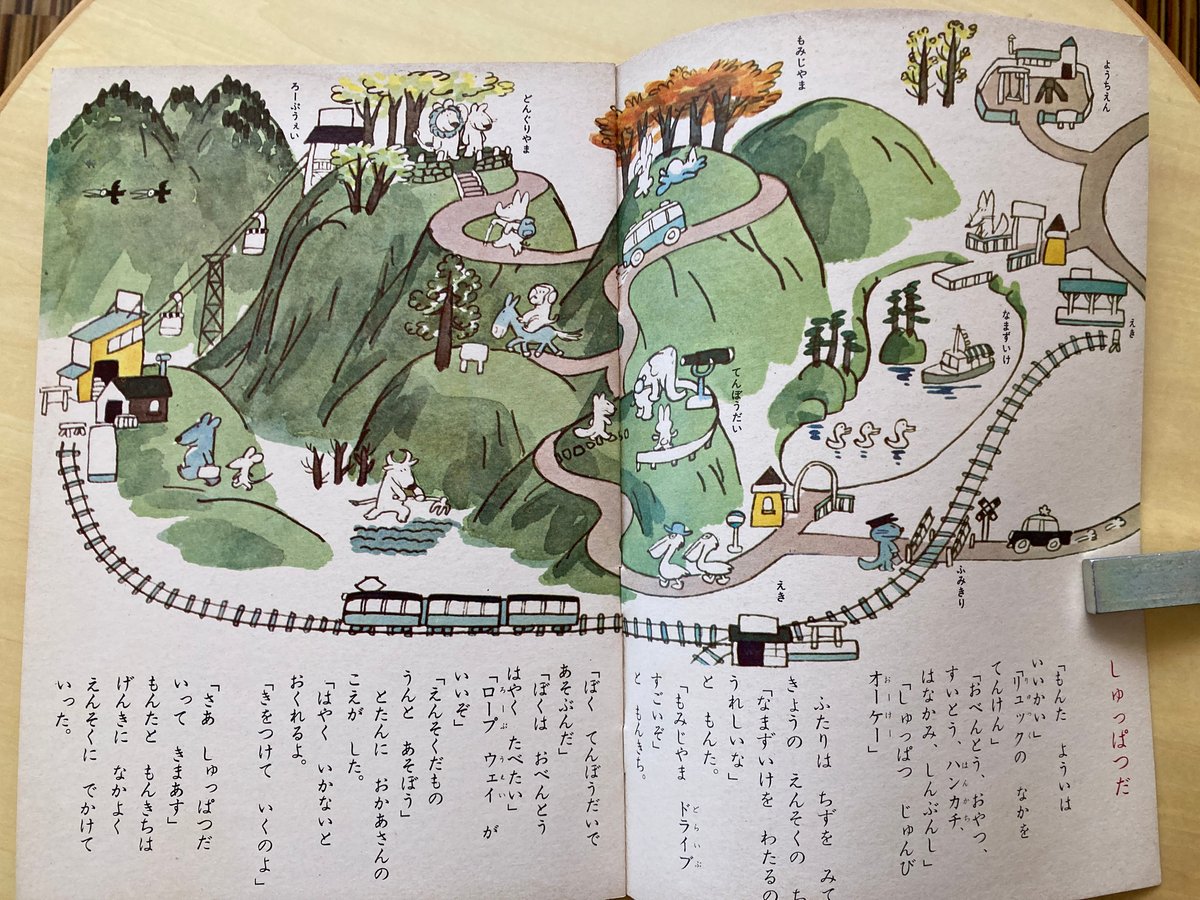 ようちえん
もみじやま
どんぐりやま
ろーぷうぇい
えき
なまずいけ
てんぼうだい
ふみきり
えき
しゅっぱつだ
「もんた　よういは
いいかい」
りゅっく
「リュックの　なかを
てんけん」
「おべんとう、おやつ、
はんかち
すいとう、ハンカチ、
はなかみ、しんぶんし」
「しゅっぱつ　じゅんび
おーけー
オーケー」
ふたりは　ちずを　みて
きょうの　えんそくの　ち
「なまずいけを　わたるの
うれしいな」
と　もんた。
どらいぶ
「もみじやま　ドライブ
すごいぞ」
と　もんきち。
「ぼく　てんぼうだいで
あそぶんだ」
「ぼくは　おべんとう
はやく　たべたい」
ろーぷうぇい
「ロープ　ウェイ　が
いいぞ」
「えんそくだもの
うんと　あそぼう」
とたんに　おかあさんの
こえが　した。
「はやく　いかないと
おくれるよ。
「きをつけて　いくのよ」
「さあ　しゅっぱつだ
いって　きまあす」
もんたと　もんきちは
げんきに　なかよく
えんそくに　でかけて
いった。